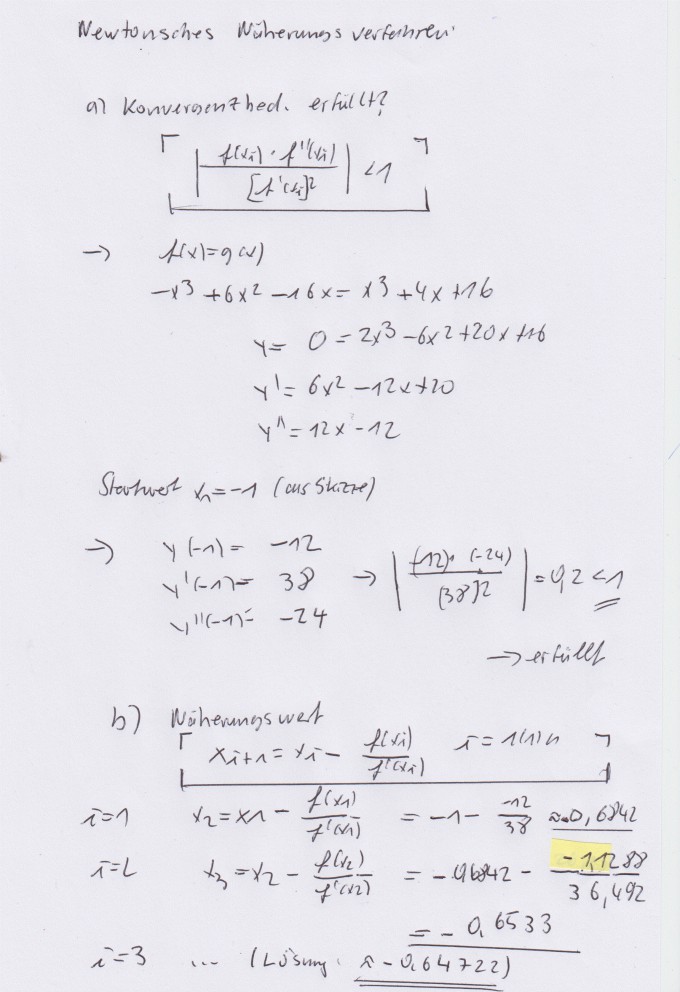 Newtonsches Näherungsverfahren:
a) Konvergenzbed. erfüllt?
| f(xi) · f''(xi) / [f'(xi)]² | < 1
→ f(x)=g(x)
-x³ + 6x² - 16x = x³ + 4x + 16
y = 0 = 2x³ - 6x² + 20x + 16
y' = 6x² - 12x + 20
y'' = 12x - 12
Startwert x₁ = -1 (aus Skizze)
→ y(-1) = -12
y'(-1) = 38 → | (-12) · (-24) / (38)² | = 0,2 < 1
y''(-1) = -24
→ erfüllt
b) Näherungswert
xi+1 = xi - f(xi) / f'(xi) i = 1(1)n
i=1 x2 = x1 - f(x1) / f'(x1) = -1 - -12 / 38 ≈ -0,6842
i=2 x3 = x2 - f(x2) / f'(x2) = -0,6842 - -1,1288 / 36,492
= -0,6533
i=3 ... (Lösung: ≈ -0,64722)